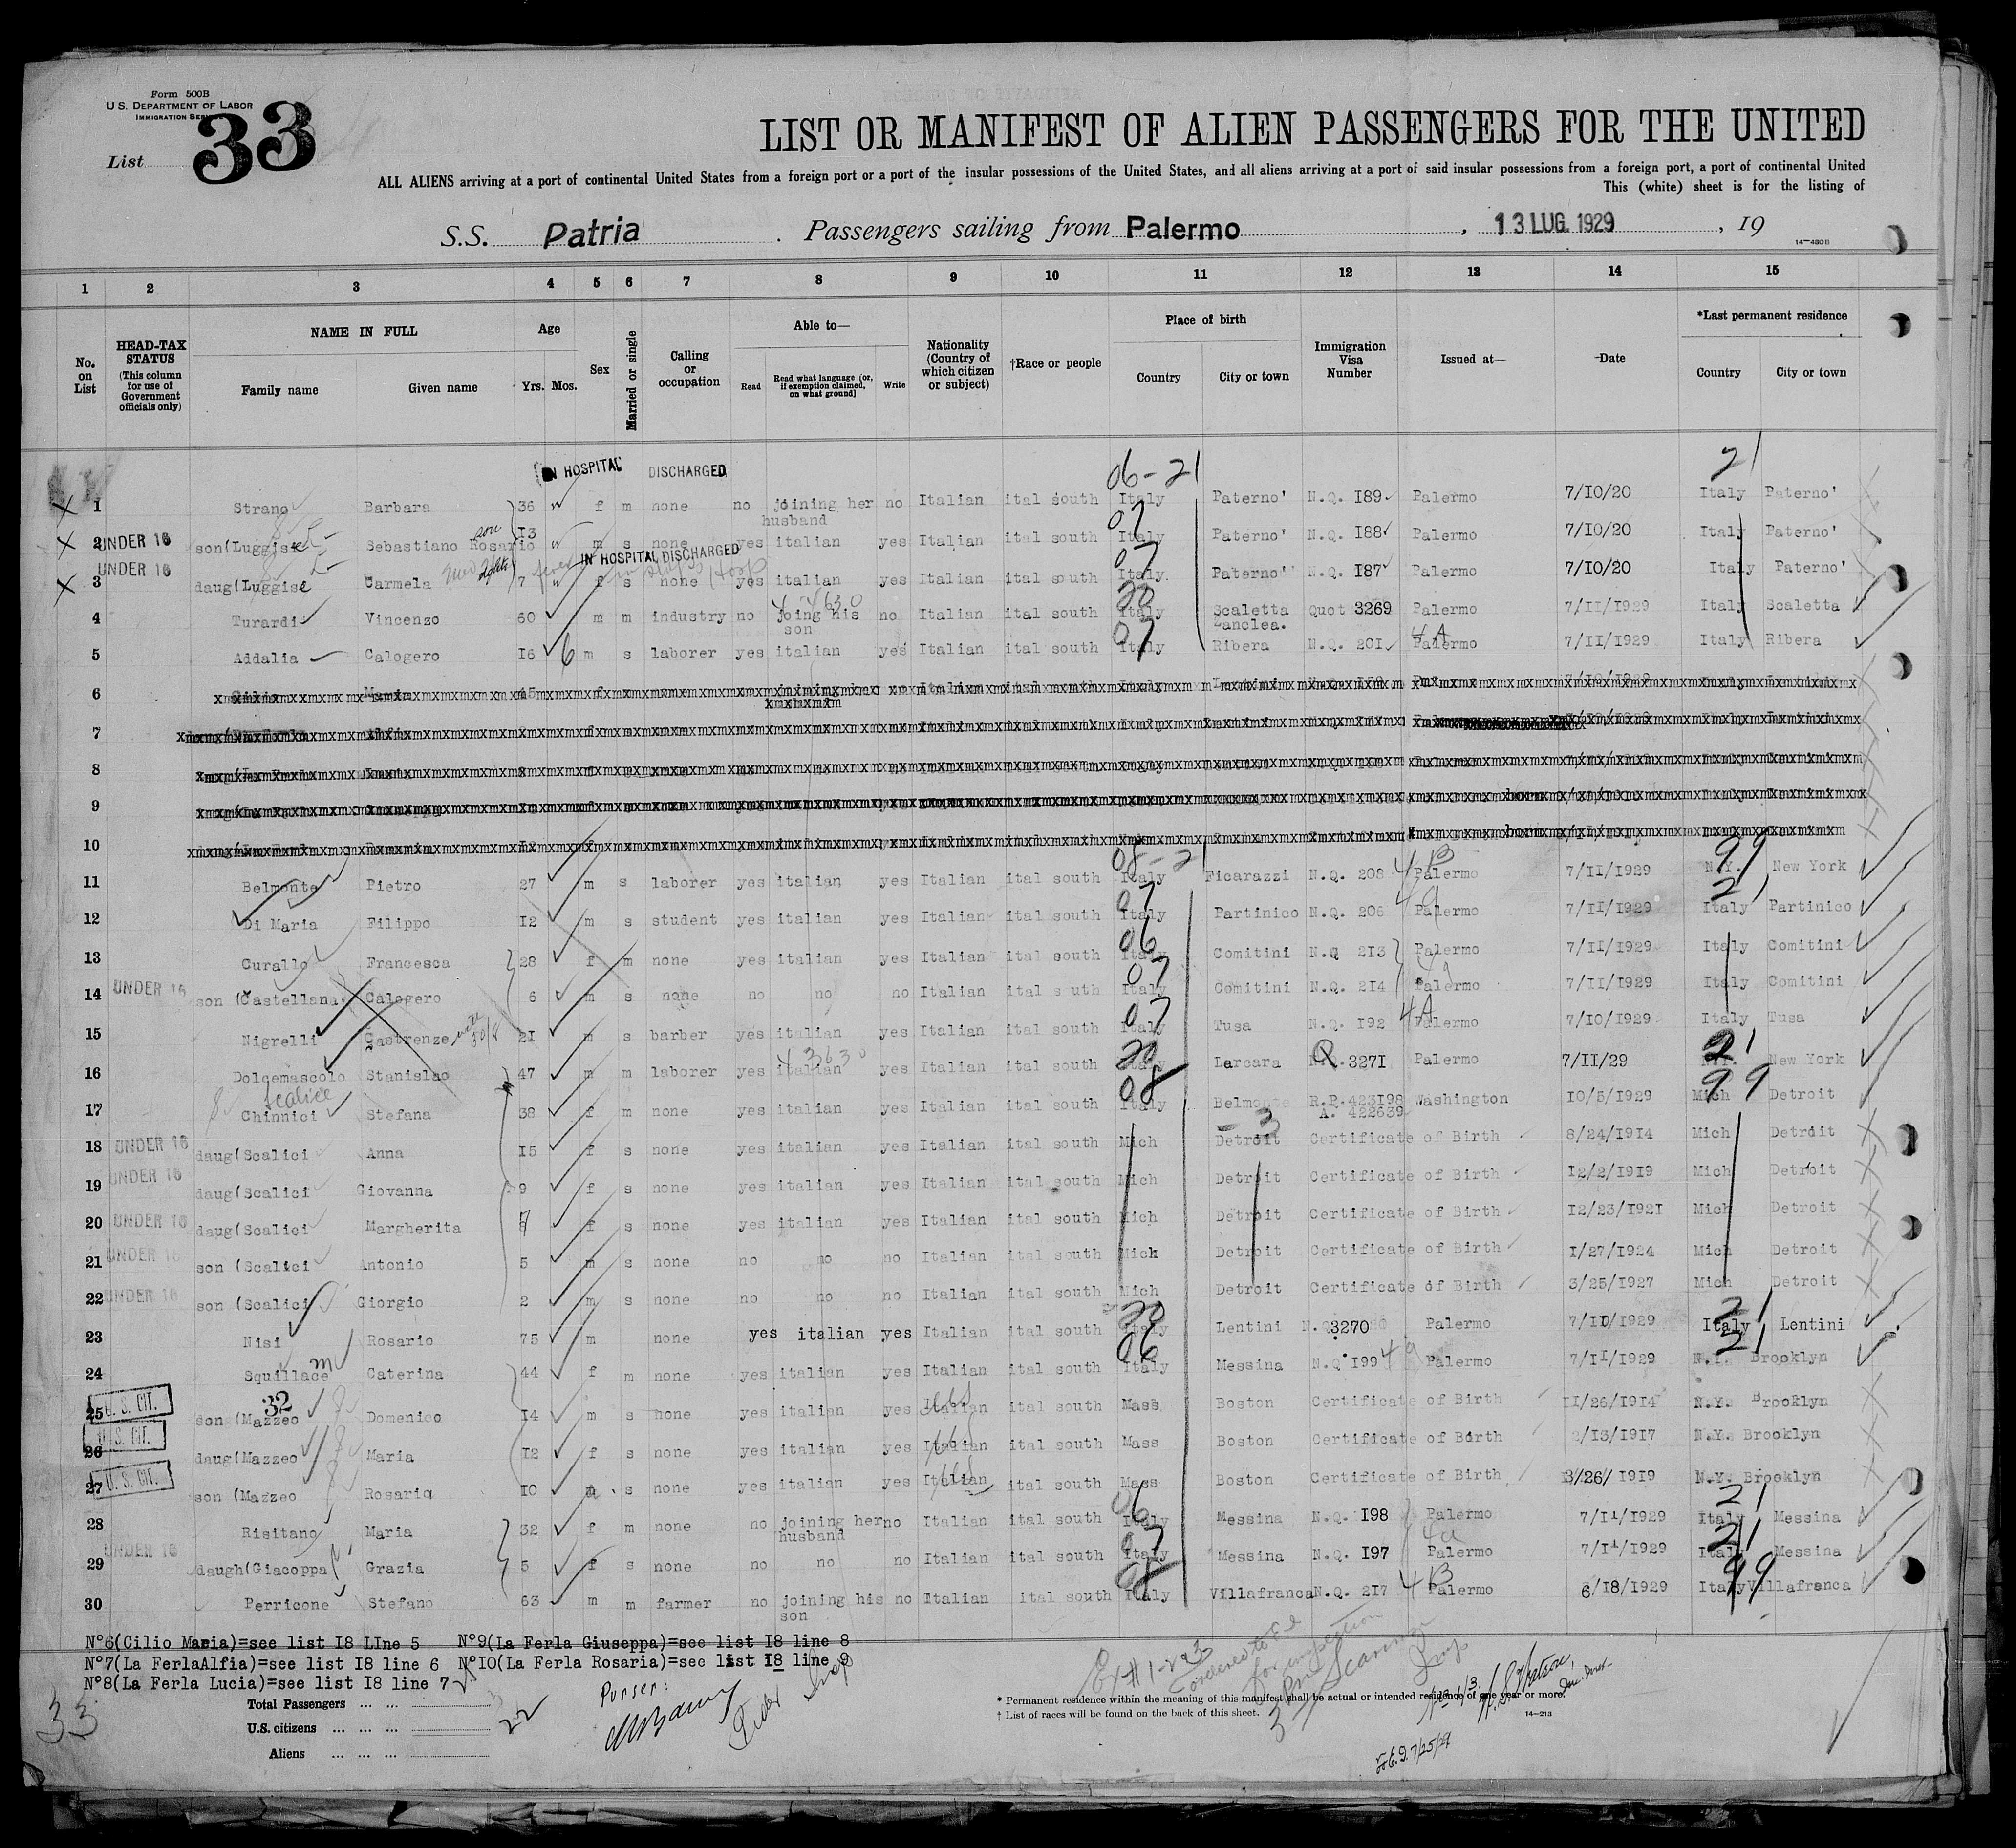 Form 500B
U. S. DEPARTMENT OF LABOR
IMMIGRATION
List 33
LIST OR MANIFEST OF ALIEN PASSENGERS FOR THE UNITED
ALL ALIENS arriving at a port of continental United States from a foreign port or a port of the insular possessions of the United States, and all aliens arriving at a port of said insular possessions from a foreign port, a port of continental United
This (white) sheet is for the listing of
S.S. Patria . Passengers sailing from Palermo , 13 LUG. 1929 , 19
14-430B
1 2 3 4 5 6 7 8 9 10 11 12 13 14 15
No. on List
HEAD-TAX STATUS (This column for use of Government officials only)
NAME IN FULL Family name Given name
Age Yrs. Mos.
Sex
Married or single
Calling or occupation
Able to— Read Read what language (or, if exemption claimed, on what ground) Write
Nationality (Country of which citizen or subject)
†Race or people
Place of birth Country City or town
Immigration Visa Number
Issued at—
Date
*Last permanent residence Country City or town
IN HOSPITAL DISCHARGED 06-21 21
X 1 Strano Barbara 36 f m none no joining her husband no Italian ital south Italy Paterno' N.Q. I89 Palermo 7/IO/20 Italy Paterno'
X 2 UNDER 16 son(Luggisi Sebastiano Rosario son I3 m s none yes italian yes Italian ital south Italy 07 Paterno' N.Q. I88 Palermo 7/IO/20 Italy Paterno'
IN HOSPITAL DISCHARGED
X 3 UNDER 16 daug(Luggisi Carmela 7 f s none yes italian yes Italian ital south Italy 07 Paterno' N.Q. I87 Palermo 7/IO/20 Italy Paterno'
4 Turardi Vincenzo 60 m m industry no joing his son no Italian ital south Italy 20 Scaletta Zanclea. Quot 3269 Palermo 7/II/I929 Italy Scaletta
5 Addalia Calogero I6 6 m s laborer yes italian yes Italian ital south Italy 07 Ribera N.Q. 20I 4A Palermo 7/II/I929 Italy Ribera
6
7
8
9
10
11 Belmonte Pietro 27 m s laborer yes italian yes Italian ital south Italy 08-21 Ficarazzi N.Q. 208 4B Palermo 7/II/I929 N.Y. 99 New York
12 Di Maria Filippo I2 m s student yes italian yes Italian ital south Italy 07 Partinico N.Q. 206 Palermo 7/II/I929 Italy 21 Partinico
13 Curallo Francesca 28 f m none yes italian yes Italian ital south Italy 06 Comitini N.Q 2I3 Palermo 7/II/I929 Italy Comitini
14 UNDER 16 son (Castellana Calogero 6 m s none no no no Italian ital s uth Italy 07 Comitini N.Q. 2I4 Palermo 7/II/I929 Italy Comitini
15 Nigrelli Castrenze 2I m s barber yes italian yes Italian ital south Italy 07 Tusa N.Q. I92 4A Palermo 7/IO/I929 Italy Tusa
16 Dolcemascolo Stanislao 47 m m laborer yes italian yes Italian ital south Italy 20 Lercara Q. 327I Palermo 7/II/29 21 New York
Scalice
17 Chinnici Stefana 38 f m none yes italian yes Italian ital south Italy 08 Belmonte R.P. 423I98 A. 422639 Washington IO/5/I929 Mich 99 Detroit
18 UNDER 16 daug(Scalici Anna I5 f s none yes italian yes Italian ital south Mich Detroit Certificate of Birth 8/24/I9I4 Mich Detroit
19 UNDER 16 daug(Scalici Giovanna 9 f s none yes italian yes Italian ital south Mich Detroit Certificate of Birth I2/2/I9I9 Mich Detroit
20 UNDER 16 daug(Scalici Margherita 7 f s none yes italian yes Italian ital south Mich Detroit Certificate of Birth I2/23/I92I Mich Detroit
21 UNDER 16 son (Scalici Antonio 5 m s none no no no Italian ital south Mich Detroit Certificate of Birth I/27/I924 Mich Detroit
22 UNDER 16 son (Scalici Giorgio 2 m s none no no no Italian ital south Mich Detroit Certificate of Birth 3/25/I927 Mich Detroit
23 Nisi Rosario 75 m none yes italian yes Italian ital south Italy 20 Lentini N.Q 3270 Palermo 7/IO/I929 Italy 21 Lentini
24 Squillace m Caterina 44 f m none yes italian yes Italian ital south Italy 06 Messina N.Q I99 Palermo 7/II/I929 N.Y. 21 Brooklyn
25 U. S. CIT. 32 son (Mazzeo Domenico I4 m s none yes italian yes Italian ital south Mass Boston Certificate of Birth II/26/I9I4 N.Y. Brooklyn
26 U. S. CIT. daug(Mazzeo Maria I2 f s none yes italian yes Italian ital south Mass Boston Certificate of Birth 2/I3/I9I7 N.Y. Brooklyn
27 U. S. CIT. son (Mazzeo Rosario IO m s none yes italian yes Italian ital south Mass Boston Certificate of Birth 3/26/ I9I9 N.Y. Brooklyn
28 Risitano Maria 32 f m none no joining her husband no Italian ital south Italy 06 Messina N.Q. I98 Palermo 7/II/I929 Italy 21 Messina
29 UNDER 16 daugh(Giacoppa Grazia 5 f s none no no no Italian ital south Italy 07 Messina N.Q. I97 Palermo 7/II/I929 Italy 21 Messina
30 Perricone Stefano 63 m m farmer no joining his son no Italian ital south Italy 08 Villafranca N.Q. 2I7 4B Palermo 6/I8/I929 Italy 99 Villafranca
N°6(Cilio Maria)=see list I8 LIne 5 N°9(La Ferla Giuseppa)=see list I8 line 8
N°7(La FerlaAlfia)=see list I8 line 6 N°IO(La Ferla Rosaria)=see list I8 line 9
N°8(La Ferla Lucia)=see list I8 line 7
33
Total Passengers ... ...
U.S. citizens ... ... ...
Aliens ... ... ...
22
Purser:
* Permanent residence within the meaning of this manifest shall be actual or intended residence of one year or more.
† List of races will be found on the back of this sheet.
14-213
7/25/29